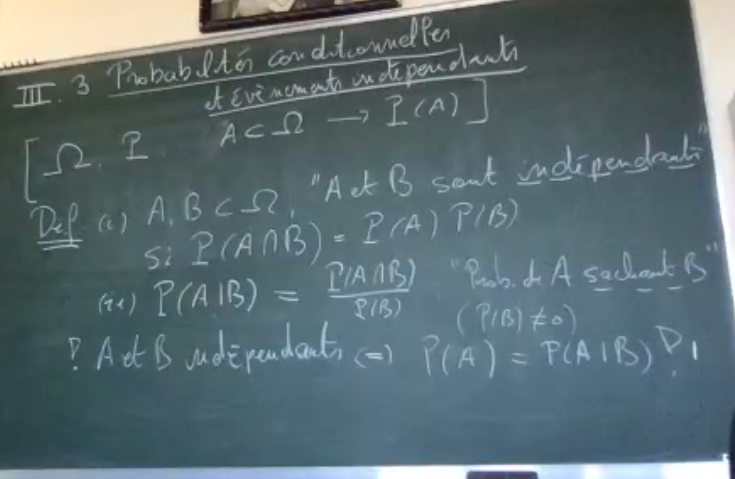 III. 3 Probabilités conditionnelles
et évènements indépendants
[Ω, P A ⊂ Ω → P(A)]
Def (i) A, B ⊂ Ω, "A et B sont indépendants"
si P(A∩B) = P(A) P(B)
(ii) P(A|B) = P(A∩B)/P(B) "Prob. de A sachant B"
(P(B) ≠ 0)
A et B indépendants (=) P(A) = P(A|B)